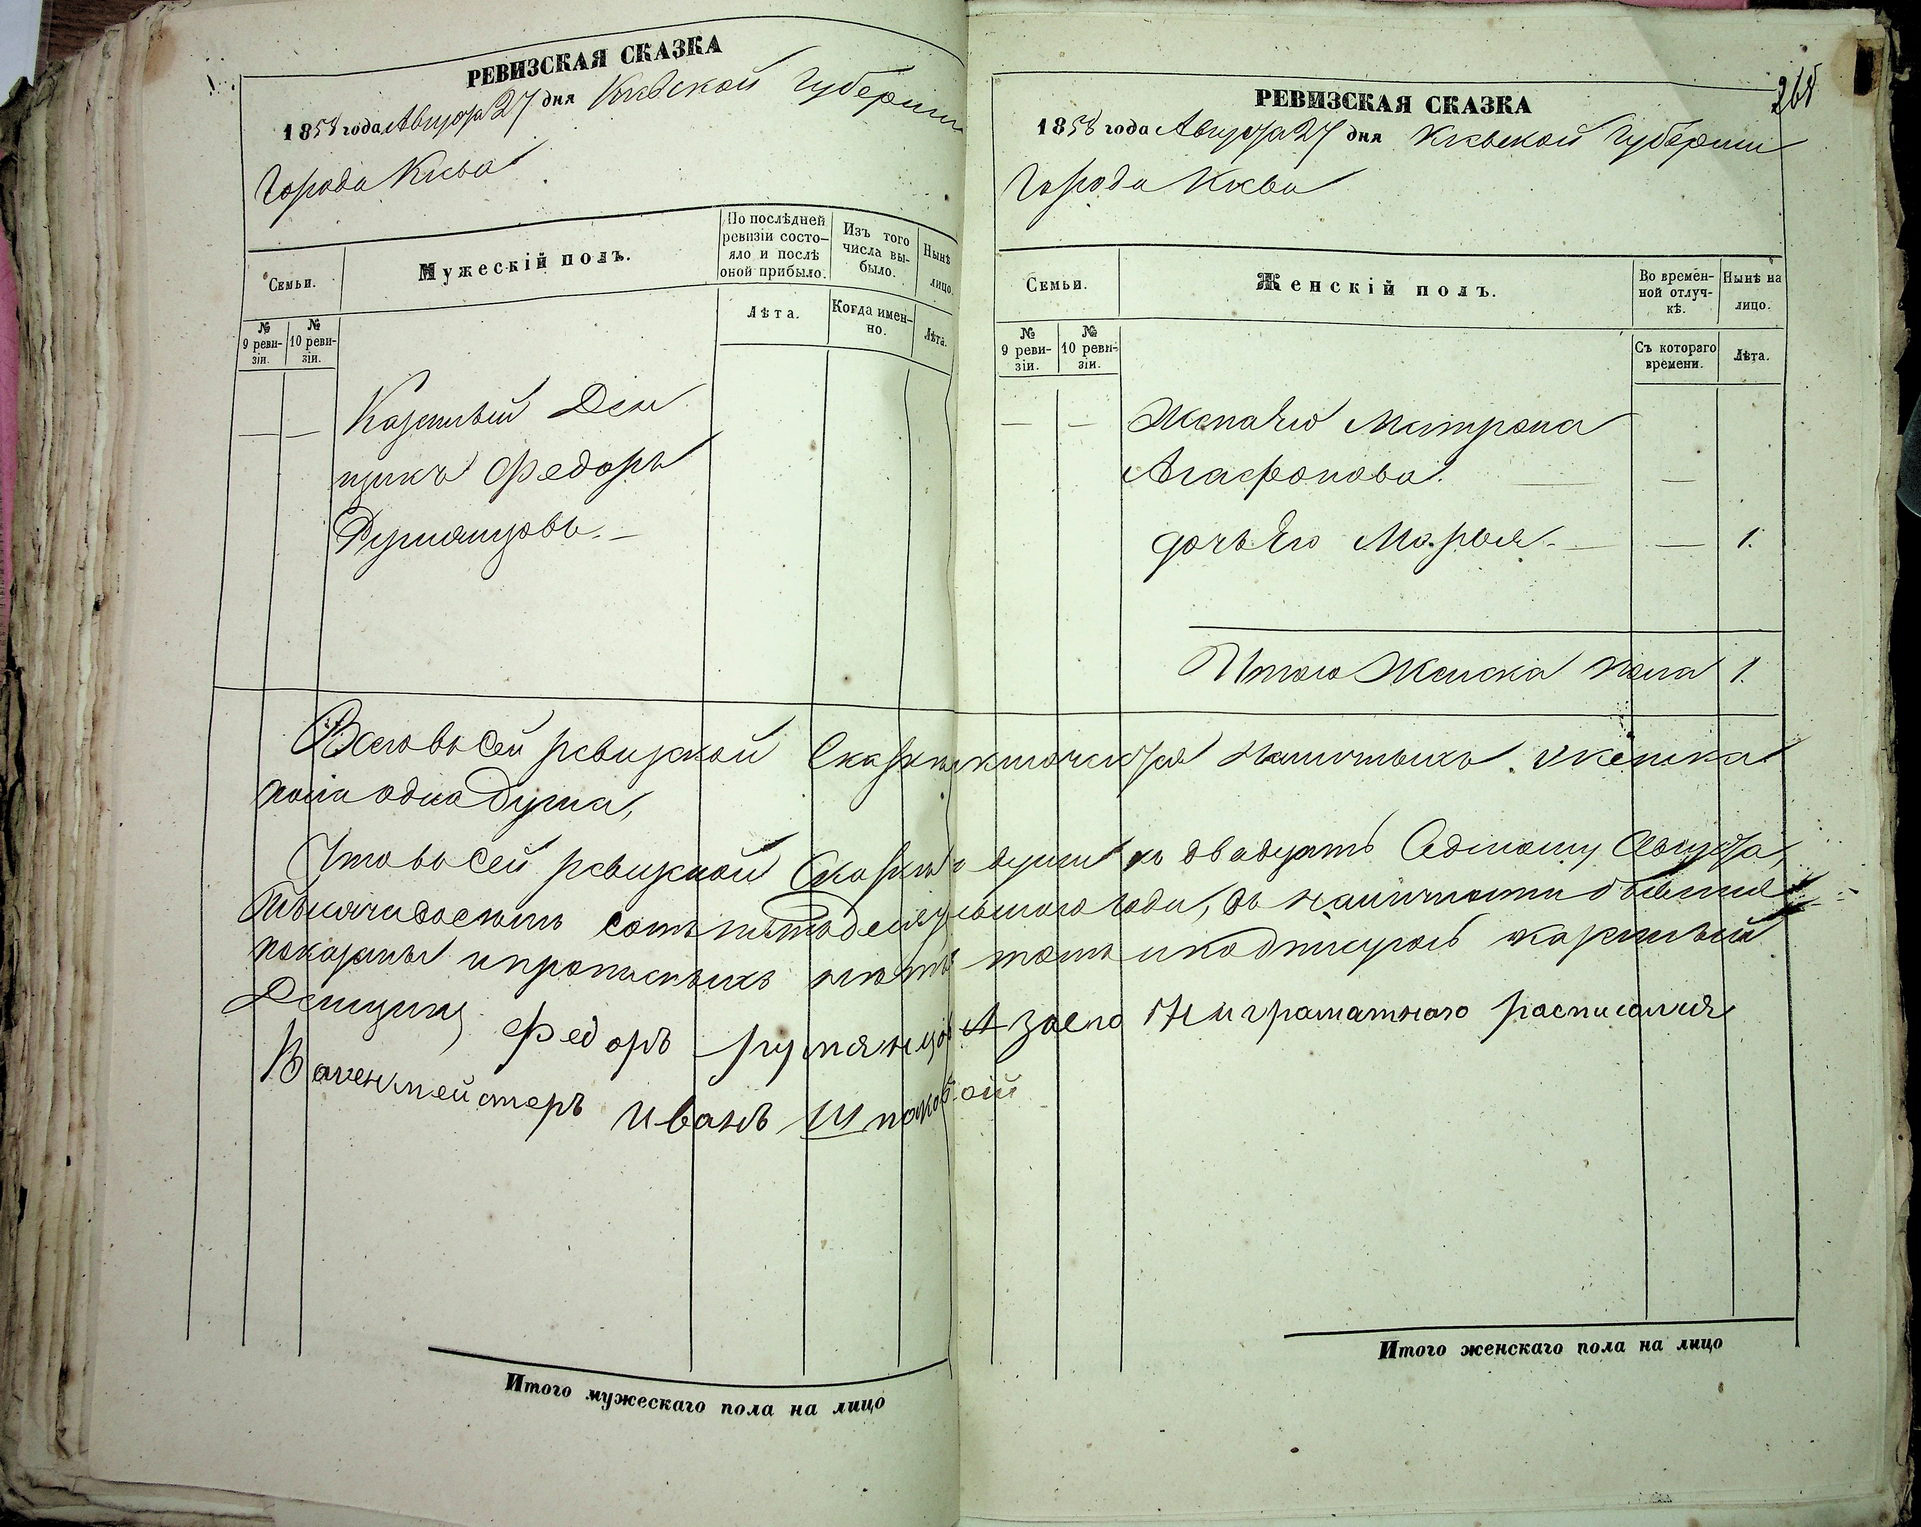 РЕВИЗСКАЯ СКАЗКА
1858 года Августа 27 дня Киевской Губернии
Города Киева
Семьи.
Мужескій полъ.
По послѣдней ревизіи состояло и послѣ оной прибыло.
Изъ того числа выбыло.
Нынѣ лицо.
№ 9 ревизіи.
№ 10 ревизіи.
Лѣта.
Когда именно.
Лѣта.
Казенный Ден
щикъ Федоръ
Румянцовъ. —
Итого мужескаго пола на лицо
268
РЕВИЗСКАЯ СКАЗКА
1858 года Августа 27 дня Киевской Губернии
Города Киева
Семьи.
Женскій полъ.
Во временной отлучкѣ.
Нынѣ на лицо.
№ 9 ревизіи.
№ 10 ревизіи.
Съ котораго времени.
Лѣта.
Жена Его Матрона
Агафонова. — —
дочь Его Марья. — — 1.
Итого Женска пола 1.
Всего въ сей ревизской Сказки заключается Наличныхъ женска
пола одна Душа,
Что въ сей ревизской Сказки души по двадцать Седмому Августа,
Тысяча восемь сотъ пятьдесят осьмого года, въ наличности бывшие
показаны и прописныхъ нетъ въ томъ и подписуюсь казенный
Денщикъ Федоръ Румянцовъ А за его Ниграматнаго росписался
Вахенмейстеръ Иванъ
Итого женскаго пола на лицо